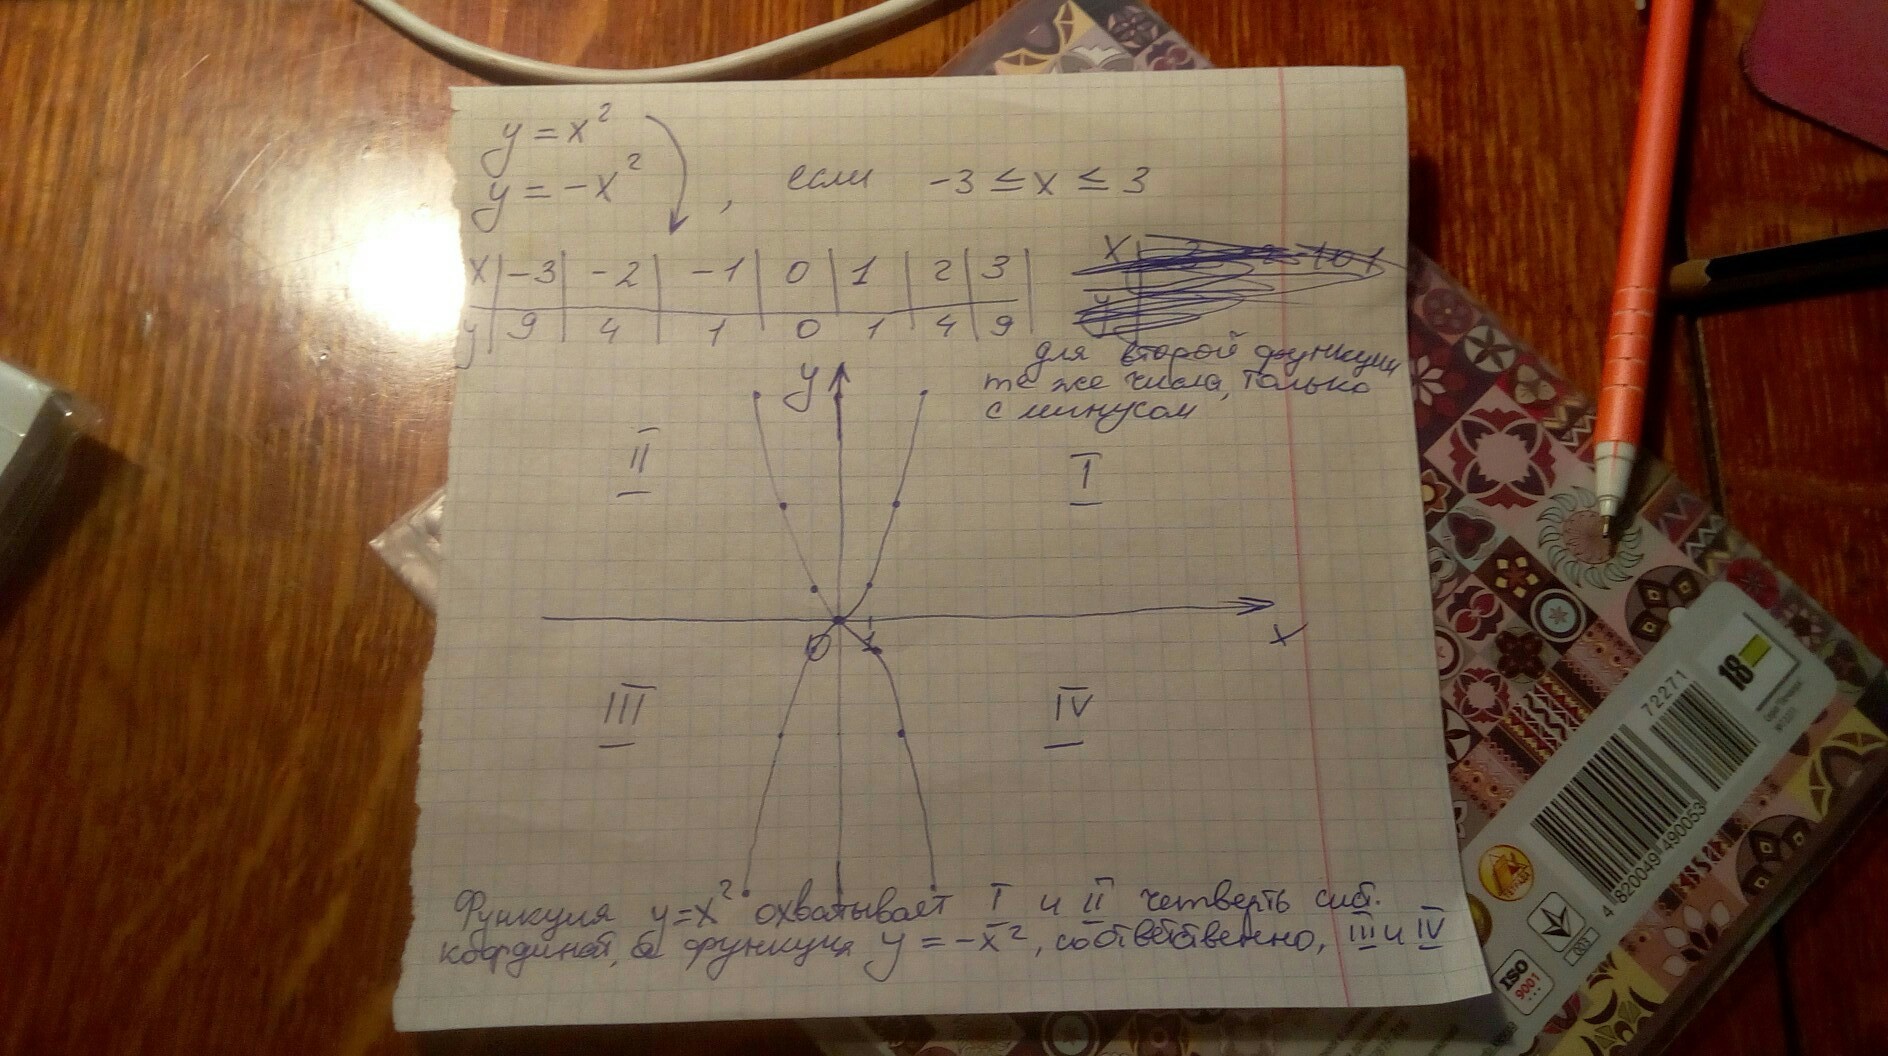 y = x²
y = -x² , если -3 ≤ x ≤ 3
x | -3 | -2 | -1 | 0 | 1 | 2 | 3
y | 9 | 4 | 1 | 0 | 1 | 4 | 9
для второй функции
те же числа, только
с минусом
y
II
I
0 1
x
III
IV
Функция y=x² охватывает I и II четверть сист.
координат, а функция y = -x², соответственно, III и IV
72271
18
4 820049 490053
ISO
9001
003